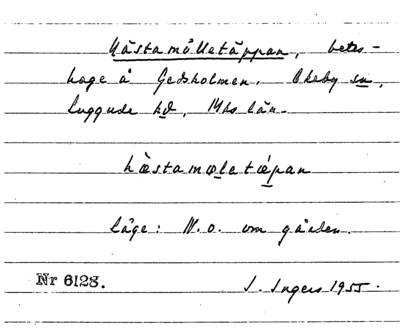 Hästamölletäppan, betes-
hage å Gedsholmen. Ekeby sn,
Luggude hd, Mhs län.
hästamøletǽpan
Läge: N.o. om gården.
Nr 6128. I. Ingers 1955.